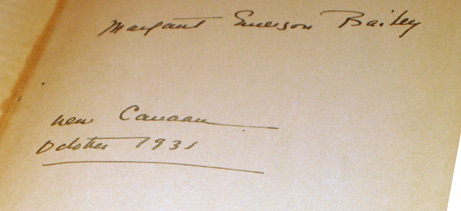 Margaret Emerson Bailey
New Canaan
October 1931